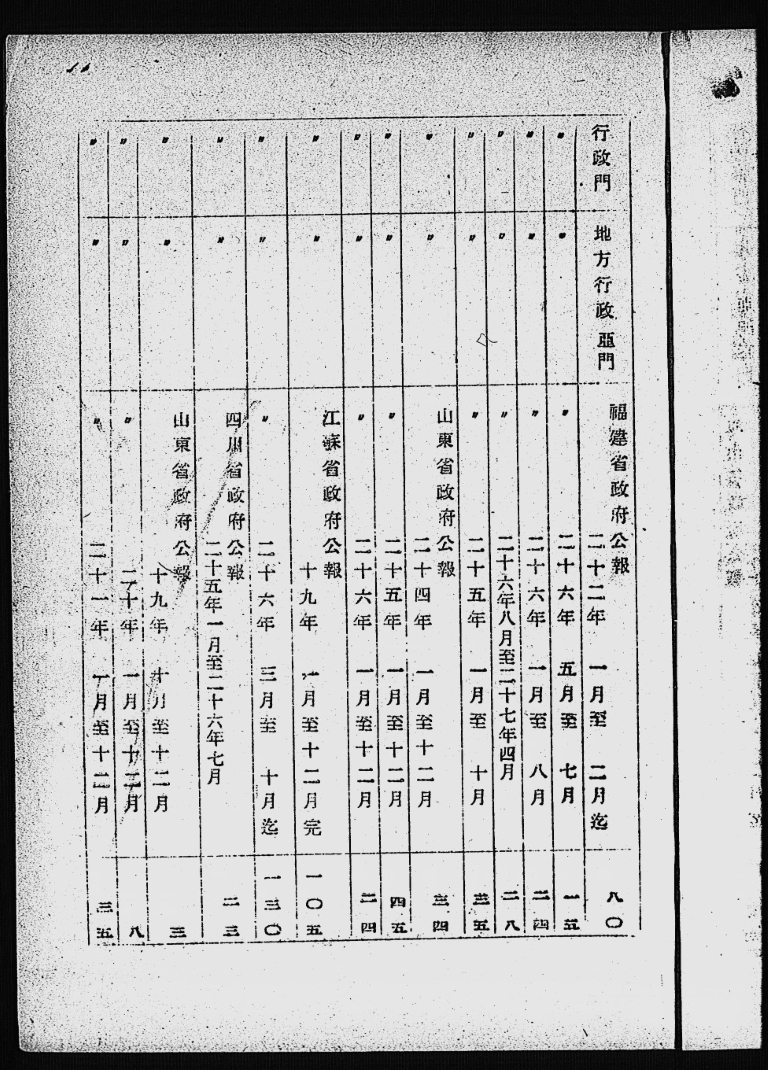 行政門 地方行政亞門 福建省政府公報 二十二年 一月至 二月迄 八〇
〃 〃 〃 二十六年 五月至 七月 一五
〃 〃 〃 二十六年 一月至 八月 二四
〃 〃 〃 二十六年八月至二十七年四月 二八
〃 〃 〃 二十五年 一月至 十月 三五
〃 〃 山東省政府公報 二十四年 一月至十二月 三四
〃 〃 〃 二十五年 一月至十二月 四五
〃 〃 〃 二十六年 一月至十二月 二四
〃 〃 江蘇省政府公報 十九年 一月至十二月完 一〇五
〃 〃 〃 二十六年 三月至 十月迄 一三〇
〃 〃 四川省政府公報 二十五年一月至二十六年七月 二三
〃 〃 山東省政府公報 十九年 十月至十二月 三
〃 〃 〃 二十年 一月至十二月 八
〃 〃 〃 二十一年 一月至十二月 三五